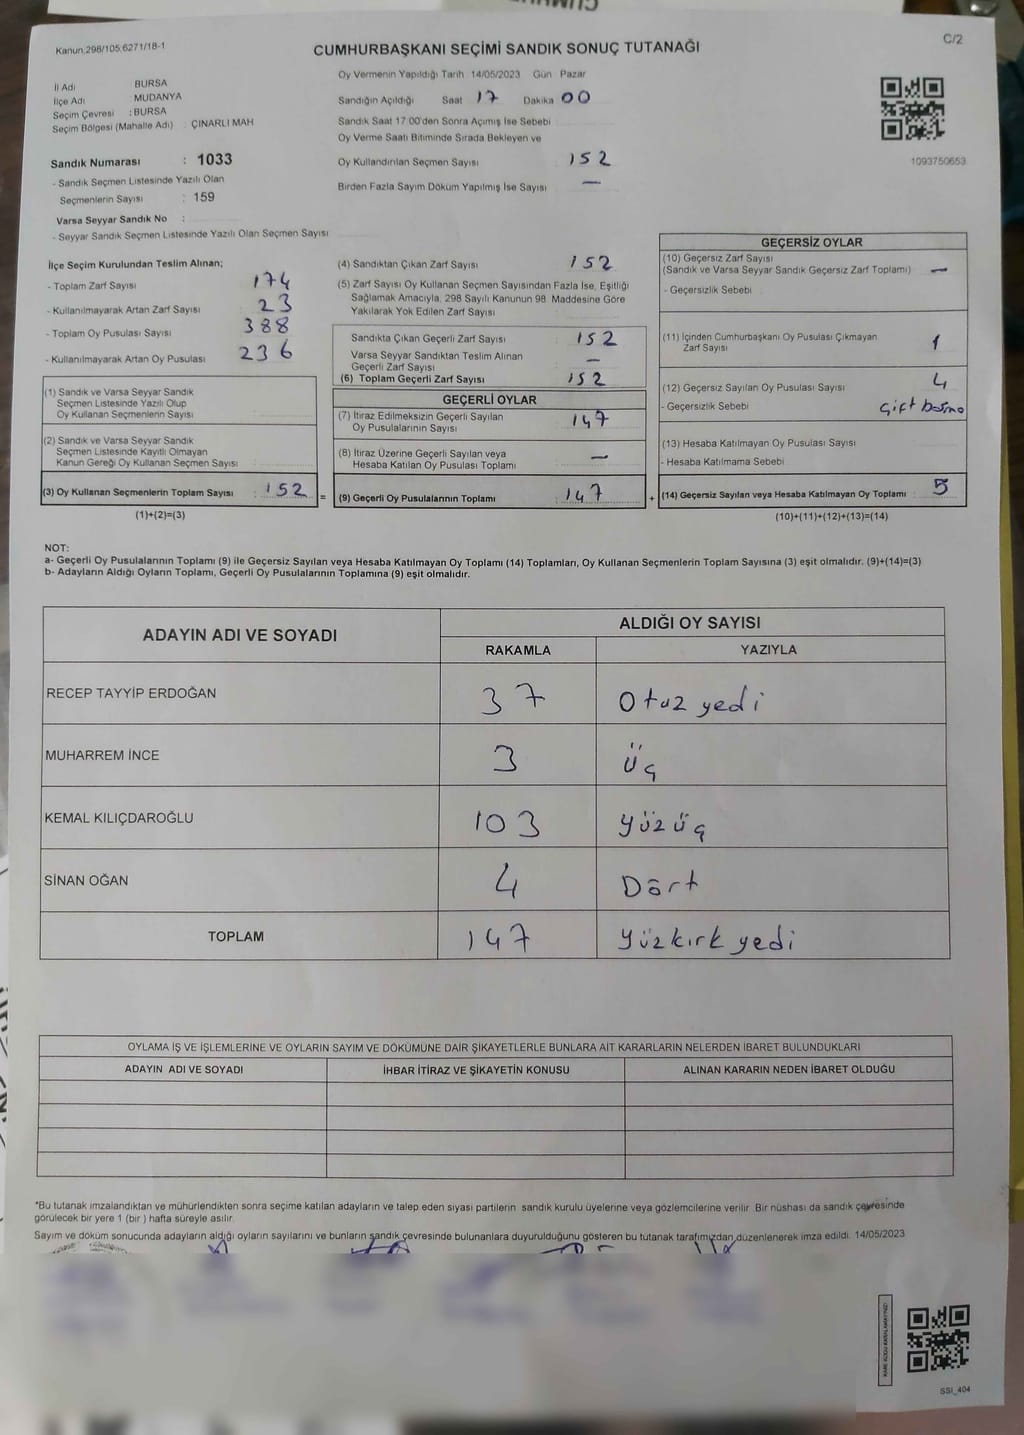 Kanun.298/105.6271/18-1
CUMHURBAŞKANI SEÇİMİ SANDIK SONUÇ TUTANAĞI
C/2
İl Adı : BURSA
İlçe Adı : MUDANYA
Seçim Çevresi : BURSA
Seçim Bölgesi (Mahalle Adı) : ÇINARLI MAH
Sandık Numarası : 1033
- Sandık Seçmen Listesinde Yazılı Olan
Seçmenlerin Sayısı : 159
Varsa Seyyar Sandık No :
- Seyyar Sandık Seçmen Listesinde Yazılı Olan Seçmen Sayısı
Oy Vermenin Yapıldığı Tarih 14/05/2023 Gün Pazar
Sandığın Açıldığı Saat 17 Dakika 00
Sandık Saat 17:00'den Sonra Açımış İse Sebebi
Oy Verme Saati Bitiminde Sırada Bekleyen ve
Oy Kullandırılan Seçmen Sayısı 152
Birden Fazla Sayım Döküm Yapılmış İse Sayısı —
1093750653
İlçe Seçim Kurulundan Teslim Alınan;
- Toplam Zarf Sayısı 174
- Kullanılmayarak Artan Zarf Sayısı 23
- Toplam Oy Pusulası Sayısı 388
- Kullanılmayarak Artan Oy Pusulası 236
(1) Sandık ve Varsa Seyyar Sandık
Seçmen Listesinde Yazılı Olup
Oy Kullanan Seçmenlerin Sayısı
(2) Sandık ve Varsa Seyyar Sandık
Seçmen Listesinde Kayıtlı Olmayan
Kanun Gereği Oy Kullanan Seçmen Sayısı
(3) Oy Kullanan Seçmenlerin Toplam Sayısı : 152 =
(1)+(2)=(3)
(4) Sandıktan Çıkan Zarf Sayısı 152
(5) Zarf Sayısı Oy Kullanan Seçmen Sayısından Fazla İse, Eşitliği
Sağlamak Amacıyla, 298 Sayılı Kanunun 98 Maddesine Göre
Yakılarak Yok Edilen Zarf Sayısı
Sandıkta Çıkan Geçerli Zarf Sayısı 152
Varsa Seyyar Sandıktan Teslim Alınan
Geçerli Zarf Sayısı —
(6) Toplam Geçerli Zarf Sayısı 152
GEÇERLİ OYLAR
(7) İtiraz Edilmeksizin Geçerli Sayılan
Oy Pusulalarının Sayısı 147
(8) İtiraz Üzerine Geçerli Sayılan veya
Hesaba Katılan Oy Pusulası Toplamı —
(9) Geçerli Oy Pusulalarının Toplamı : 147 +
GEÇERSİZ OYLAR
(10) Geçersiz Zarf Sayısı
(Sandık ve Varsa Seyyar Sandık Geçersiz Zarf Toplamı) —
- Geçersizlik Sebebi
(11) İçinden Cumhurbaşkanı Oy Pusulası Çıkmayan
Zarf Sayısı 1
(12) Geçersiz Sayılan Oy Pusulası Sayısı 4
- Geçersizlik Sebebi Çift basma
(13) Hesaba Katılmayan Oy Pusulası Sayısı
- Hesaba Katılmama Sebebi
(14) Geçersiz Sayılan veya Hesaba Katılmayan Oy Toplamı : 5
(10)+(11)+(12)+(13)=(14)
NOT:
a- Geçerli Oy Pusulalarının Toplamı (9) ile Geçersiz Sayılan veya Hesaba Katılmayan Oy Toplamı (14) Toplamları, Oy Kullanan Seçmenlerin Toplam Sayısına (3) eşit olmalıdır. (9)+(14)=(3)
b- Adayların Aldığı Oyların Toplamı, Geçerli Oy Pusulalarının Toplamına (9) eşit olmalıdır.
ADAYIN ADI VE SOYADI ALDIĞI OY SAYISI
RAKAMLA YAZIYLA
RECEP TAYYİP ERDOĞAN 37 Otuz yedi
MUHARREM İNCE 3 üç
KEMAL KILIÇDAROĞLU 103 yüz üç
SİNAN OĞAN 4 Dört
TOPLAM 147 yüzkırk yedi
OYLAMA İŞ VE İŞLEMLERİNE VE OYLARIN SAYIM VE DÖKÜMÜNE DAİR ŞİKAYETLERLE BUNLARA AİT KARARLARIN NELERDEN İBARET BULUNDUKLARI
ADAYIN ADI VE SOYADI İHBAR İTİRAZ VE ŞİKAYETİN KONUSU ALINAN KARARIN NEDEN İBARET OLDUĞU
*Bu tutanak imzalandıktan ve mühürlendikten sonra seçime katılan adayların ve talep eden siyasi partilerin sandık kurulu üyelerine veya gözlemcilerine verilir. Bir nüshası da sandık çevresinde
görülecek bir yere 1 (bir ) hafta süreyle asılır.
Sayım ve döküm sonucunda adayların aldığı oyların sayılarını ve bunların sandık çevresinde bulunanlara duyurulduğunu gösteren bu tutanak tarafımızdan düzenlenerek imza edildi. 14/05/2023
SSI_404